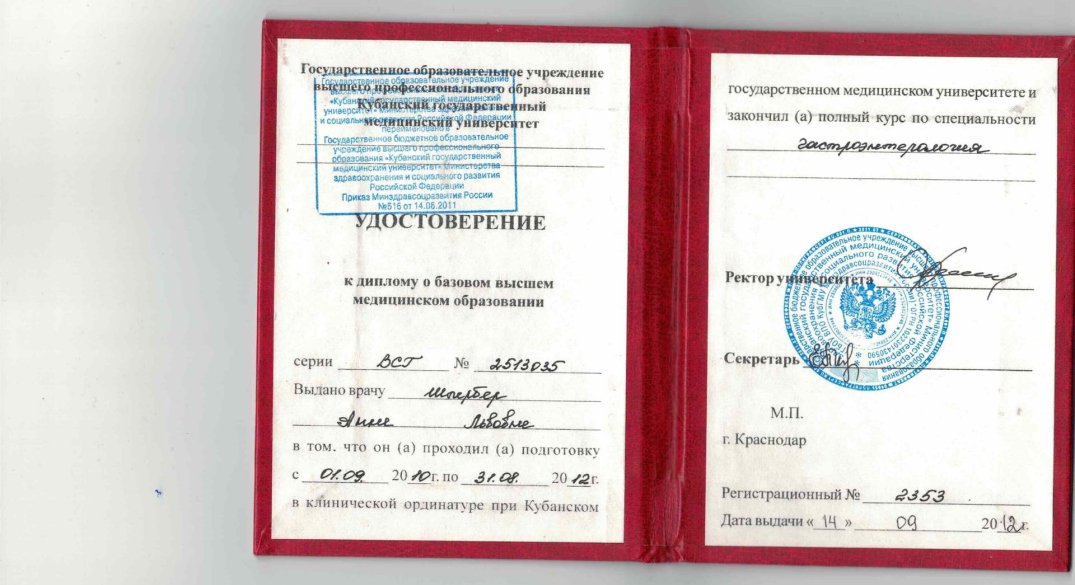 Государственное образовательное учреждение
высшего профессионального образования
Кубанский государственный
медицинский университет
Государственное образовательное учреждение
высшего профессионального образования
«Кубанский государственный медицинский
университет» Министерства здравоохранения
и социального развития Российской Федерации
переименовано в
Государственное бюджетное образовательное
учреждение высшего профессионального
образования «Кубанский государственный
медицинский университет» Министерства
здравоохранения и социального развития
Российской Федерации
Приказ Минздравсоцразвития России
№516 от 14.06.2011
УДОСТОВЕРЕНИЕ
к диплому о базовом высшем
медицинском образовании
серии ВСГ № 2513035
Выдано врачу
Анне Львовне
в том, что он (а) проходил (а) подготовку
с 01.09 2010г. по 31.08. 2012г.
в клинической ординатуре при Кубанском
государственном медицинском университете и
закончил (а) полный курс по специальности
гастроэнтерология
Ректор университета
Секретарь
М.П.
г. Краснодар
Регистрационный № 2353
Дата выдачи « 14 » 09 2012г.